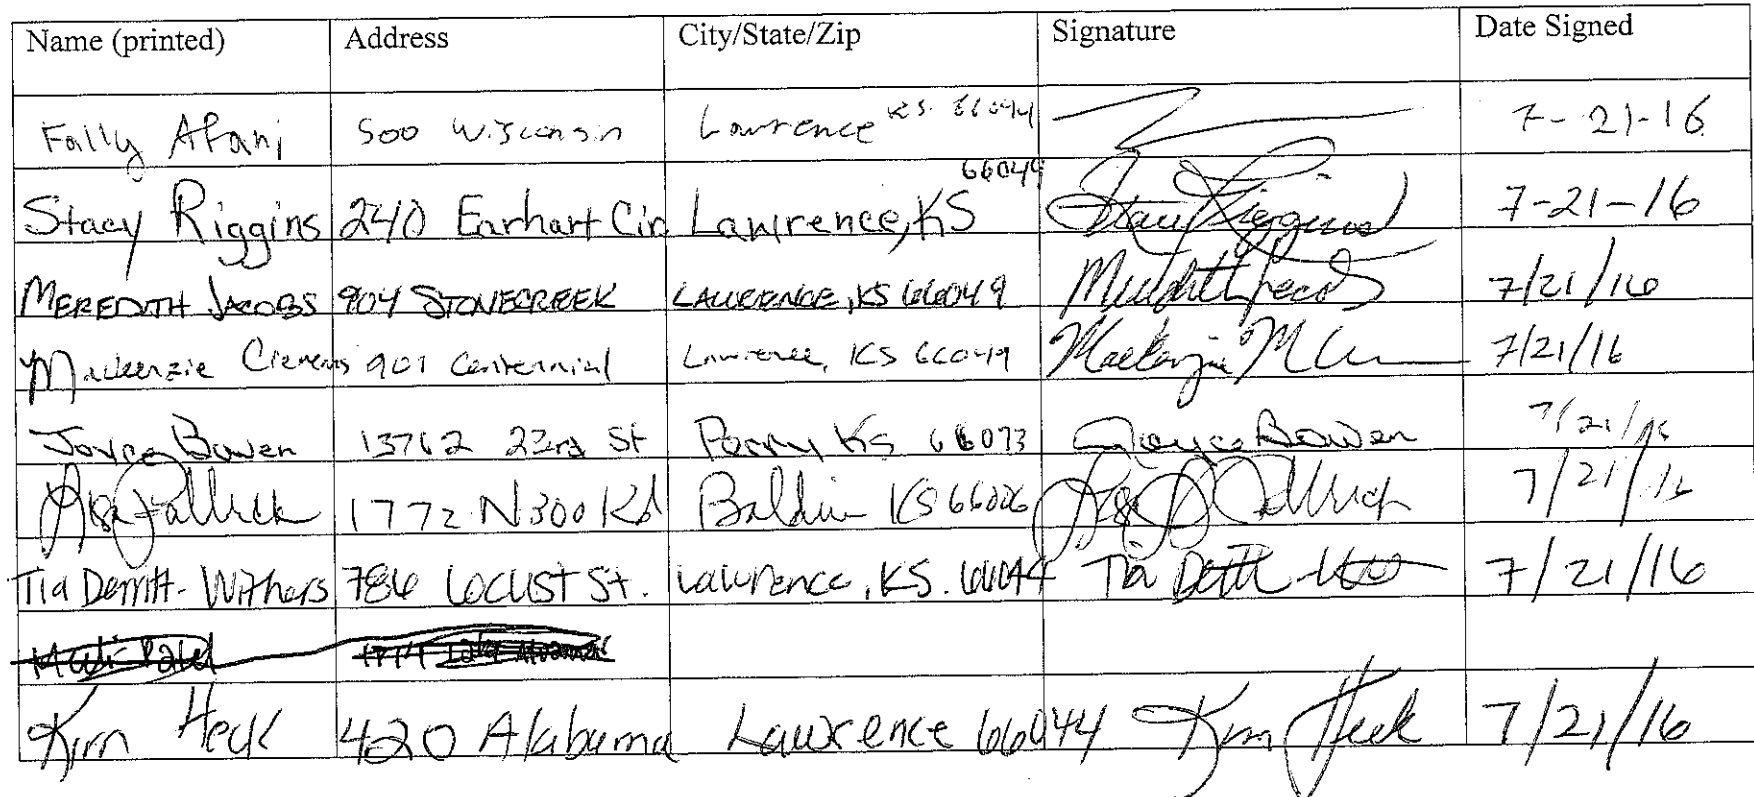 Name (printed) Address City/State/Zip Signature Date Signed
Fally Afani 500 Wisconsin Lawrence KS. 66044 7-21-16
Stacy Riggins 240 Earhart Cir Lawrence, KS 66049 Stacy Riggins 7-21-16
MEREDITH JACOBS 904 STONECREEK LAWRENCE, KS 66049 Meredith Jacobs 7/21/16
Mackenzie Clemens 901 Centennial Lawrence, KS 66049 Mackenzie M 7/21/16
Joyce Bowen 13762 22rd St Perry Ks 66073 Joyce Bowen 7/21/16
Lisa 1772 N 300 Rd Baldwin KS 66006 Lisa 7/21/16
Tia Derritt-Withers 786 LOCUST St. Lawrence, KS. 66044 Tia 7/21/16
Kim Heck 420 Alabama Lawrence 66044 Kim Heck 7/21/16